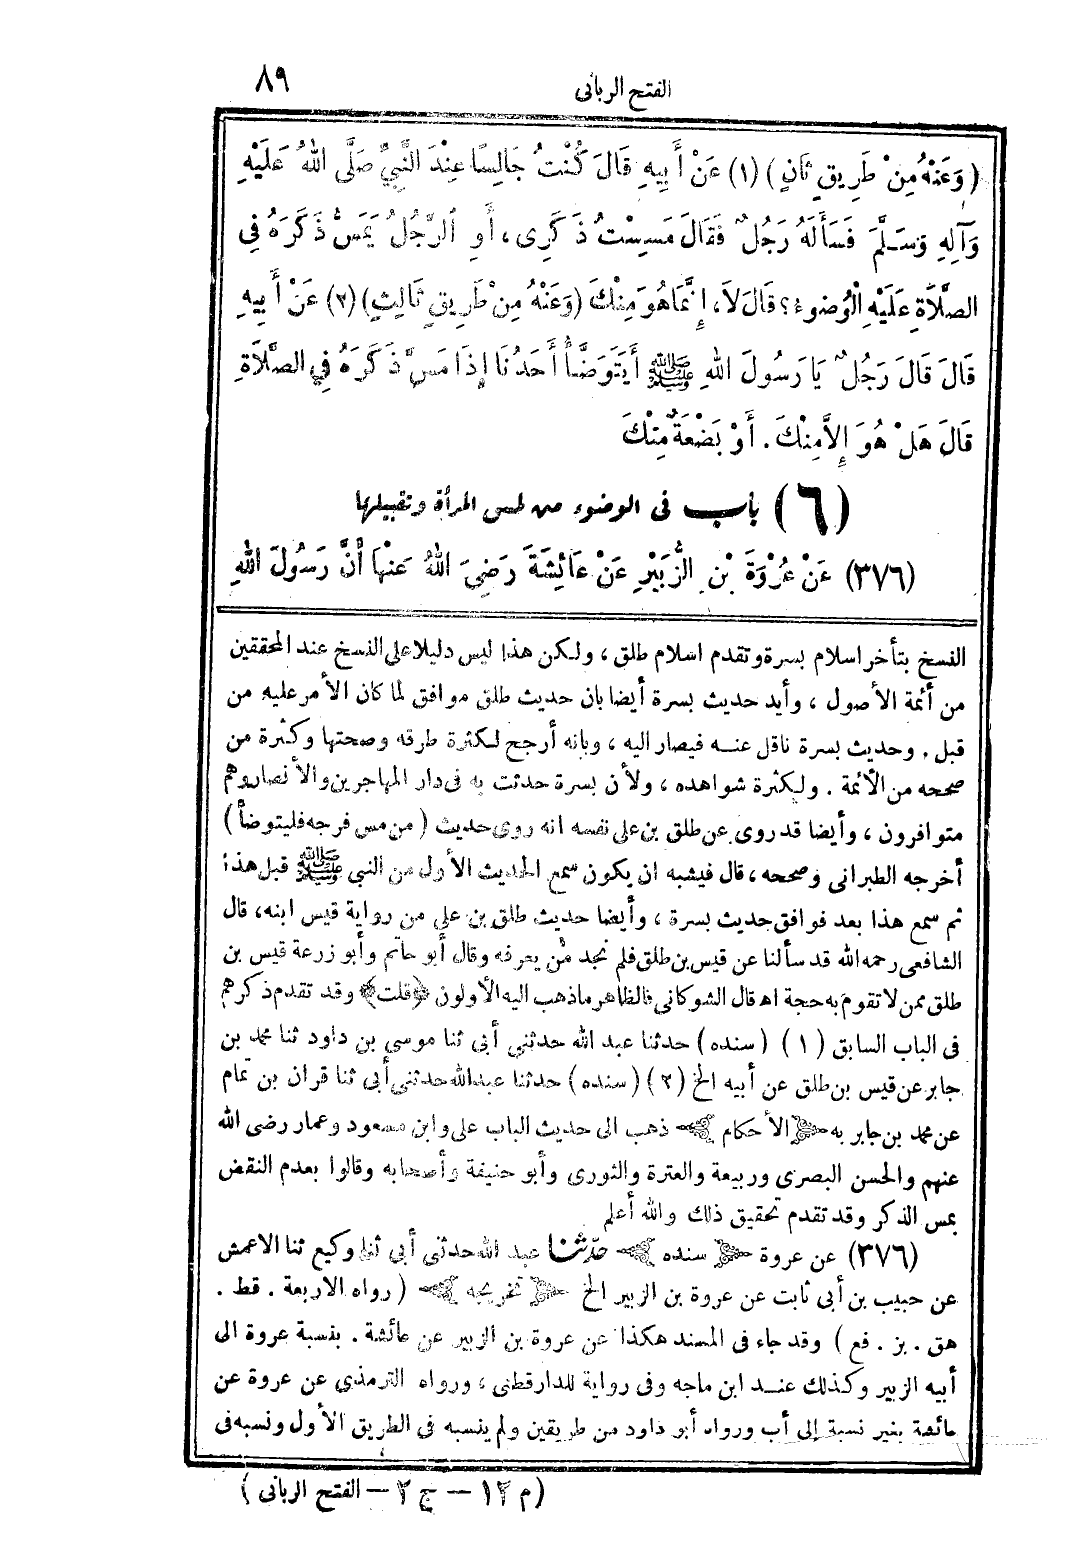 ٨٩
الفتح الربانى
( وَعَنْهُ مِنْ طَرِيقٍ ثَانٍ ) (١) عَنْ أَبِيهِ قَالَ كُنْتُ جَالِسًا عِنْدَ النَّبِيِّ صَلَّى اللهُ عَلَيْهِ
وَآلِهِ وَسَلَّمَ فَسَأَلَهُ رَجُلٌ فَقَالَ مَسِسْتُ ذَكَرِى، أَوِ الرَّجُلُ يَمَسُّ ذَكَرَهُ فِى
الصَّلَاةِ عَلَيْهِ الْوُضُوءُ؟ قَالَ لَا، إِنَّمَا هُوَ مِنْكَ (وَعَنْهُ مِنْ طَرِيقٍ ثَالِثٍ) (٢) عَنْ أَبِيهِ
قَالَ قَالَ رَجُلٌ يَا رَسُولَ اللهِ ﷺ أَيَتَوَضَّأُ أَحَدُنَا إِذَا مَسَّ ذَكَرَهُ فِي الصَّلَاةِ
قَالَ هَلْ هُوَ إِلاَّ مِنْكَ . أَوْ بَضْعَةٌ مِنْكَ
(٦) باب فى الوضوء من لمس المرأة وتقبيلها
(٣٧٦) عَنْ عُرْوَةَ بْنِ الزُّبَيْرِ عَنْ عَائِشَةَ رَضِيَ اللهُ عَنْهَا أَنَّ رَسُولَ اللهِ
النسخ بتأخر اسلام بسرة وتقدم اسلام طلق ، ولكن هذا ليس دليلا على النسخ عند المحققين
من أئمة الأصول ، وأيد حديث بسرة أيضا بان حديث طلق موافق لما كان الأمر عليه من
قبل . وحديث بسرة ناقل عنه فيصار اليه ، وبانه أرجح لكثرة طرقه وصحتها وكثرة من
صححه من الأئمة . ولكثرة شواهده ، ولأن بسرة حدثت به فى دار المهاجرين والأنصار وهم
متوافرون ، وأيضا قد روى عن طلق بن على نفسه انه روى حديث ( من مس فرجه فليتوضأ )
أخرجه الطبرانى وصححه ، قال فيشبه ان يكون سمع الحديث الأول من النبى ﷺ قبل هذا
ثم سمع هذا بعد فوافق حديث بسرة ، وأيضا حديث طلق بن على من رواية قيس ابنه، قال
الشافعى رحمه الله قد سألنا عن قيس بن طلق فلم نجد من يعرفه وقال أبو حاتم وأبو زرعة قيس بن
طلق ممن لا تقوم به حجة اهـ قال الشوكانى فالظاهر ما ذهب اليه الأولون ﴿قلت﴾ وقد تقدم ذكرهم
فى الباب السابق (١) (سنده) حدثنا عبد الله حدثني أبى ثنا موسي بن داود ثنا محمد بن
جابر عن قيس بن طلق عن أبيه الخ (٢) (سنده) حدثنا عبد الله حدثنى أبى ثنا قران بن تمام
عن محمد بن جابر به ﴿الأحكام﴾ ذهب الى حديث الباب على وابن مسعود وعمار رضى الله
عنهم والحسن البصرى وربيعة والعترة والثورى وأبو حنيفة وأصحابه وقالوا بعدم النقض
بمس الذكر وقد تقدم تحقيق ذلك والله أعلم
(٣٧٦) عن عروة ﴿سنده﴾ حدثنا عبد الله حدثنى أبى ثنا وكيع ثنا الاعمش
عن حبيب بن أبى ثابت عن عروة بن الزبير الخ ﴿تخريجه﴾ (رواه الاربعة . قط .
هق . بز . فع ) وقد جاء فى المسند هكذا عن عروة بن الزبير عن عائشة . بنسبة عروة الى
أبيه الزبير وكذلك عند ابن ماجه وفى رواية للدارقطنى ، ورواه الترمذي عن عروة عن
عائشة بغير نسبة إلى أب ورواه أبو داود من طريقين ولم ينسبه فى الطريق الأول ونسبه فى
(م ١٢ — ج ٢ — الفتح الربانى )